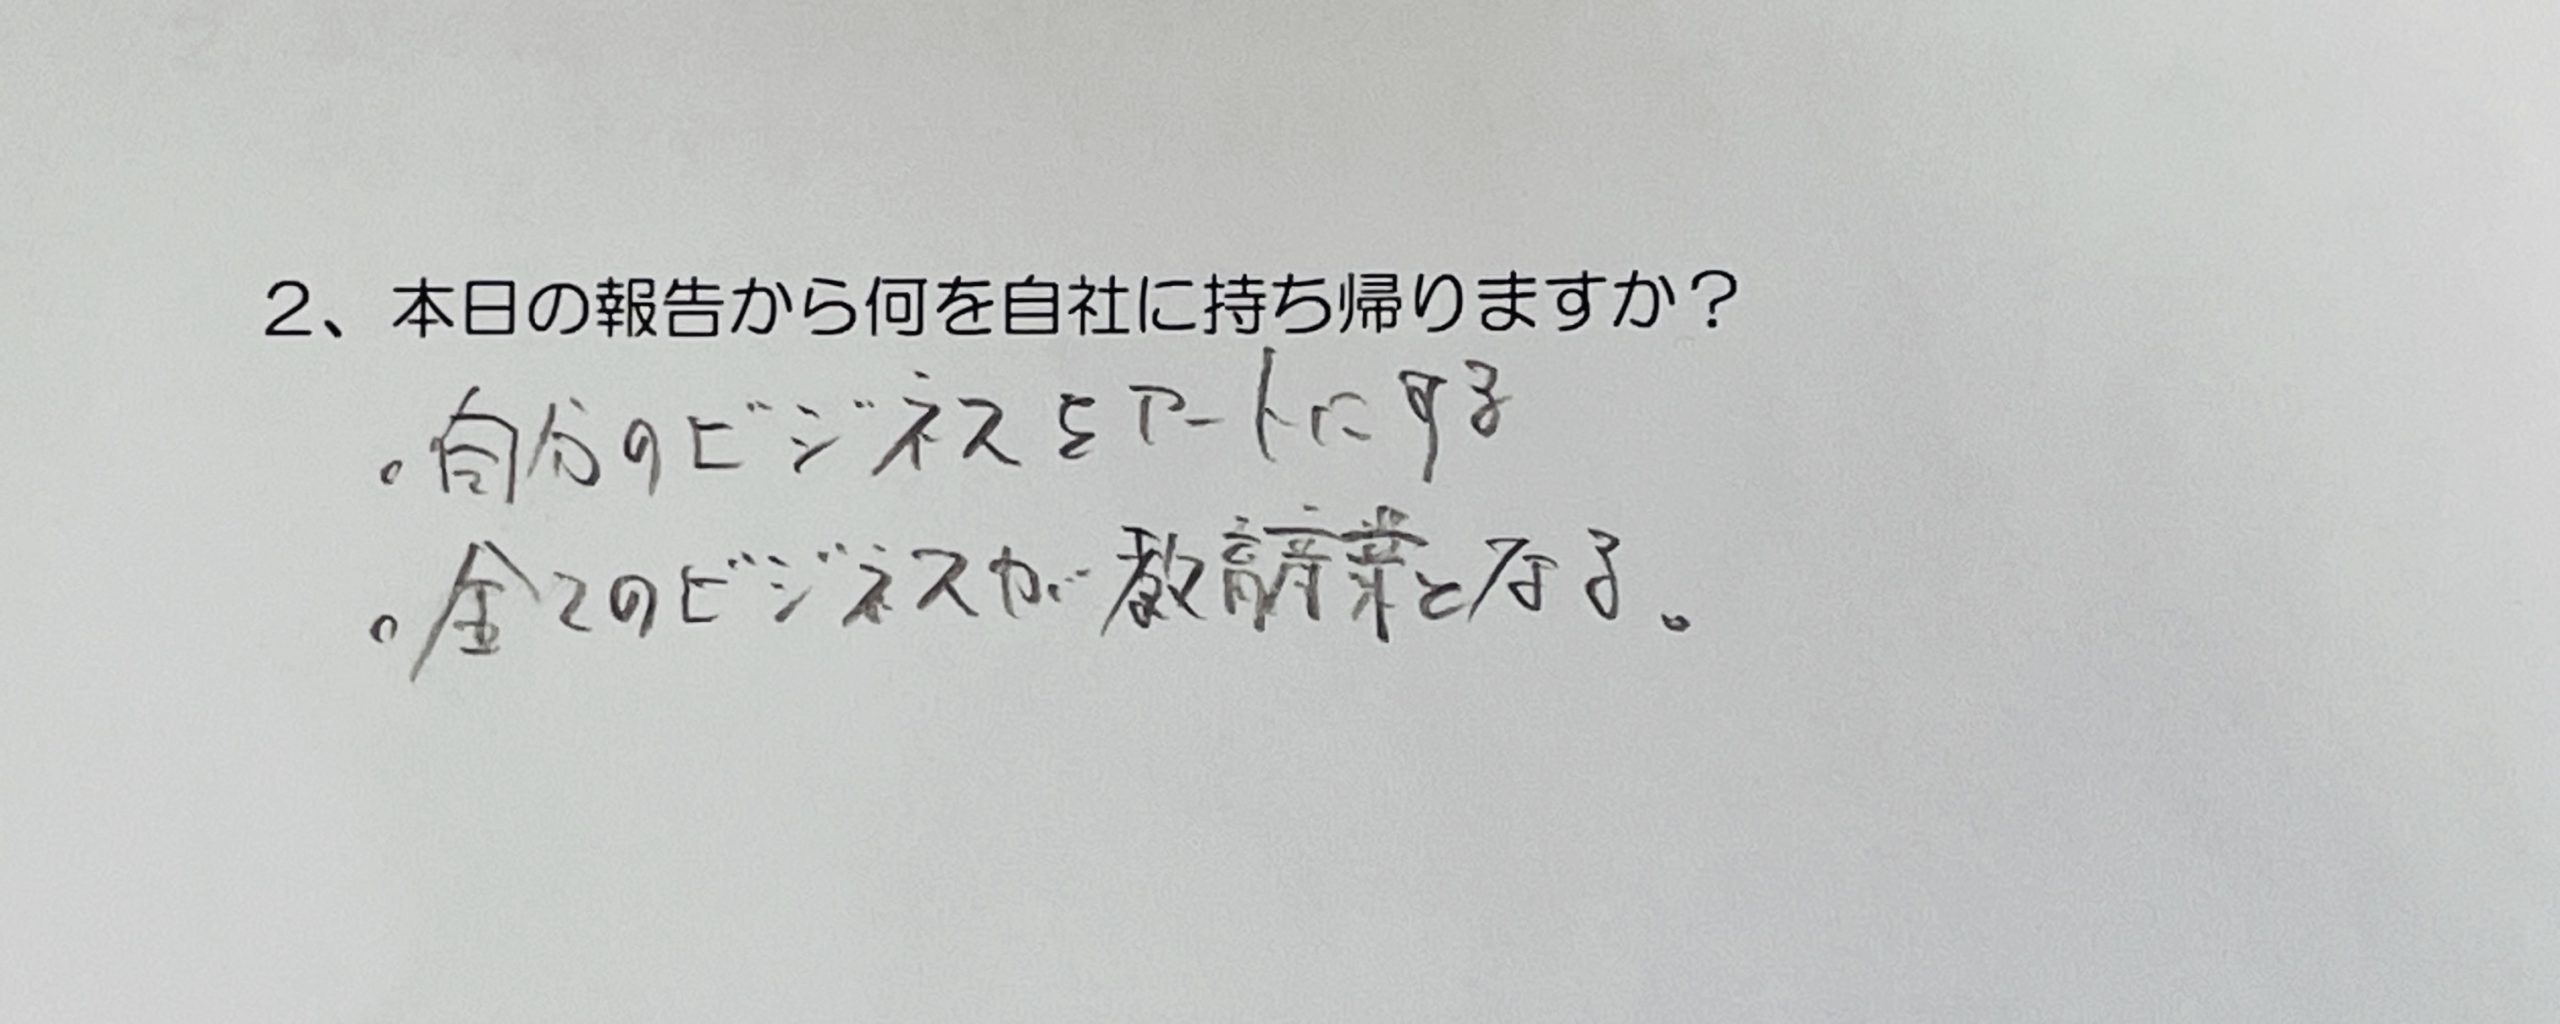 2、本日の報告から何を自社に持ち帰りますか？
。自分のビジネスをアートにする
。全てのビジネスが教育産業となる。